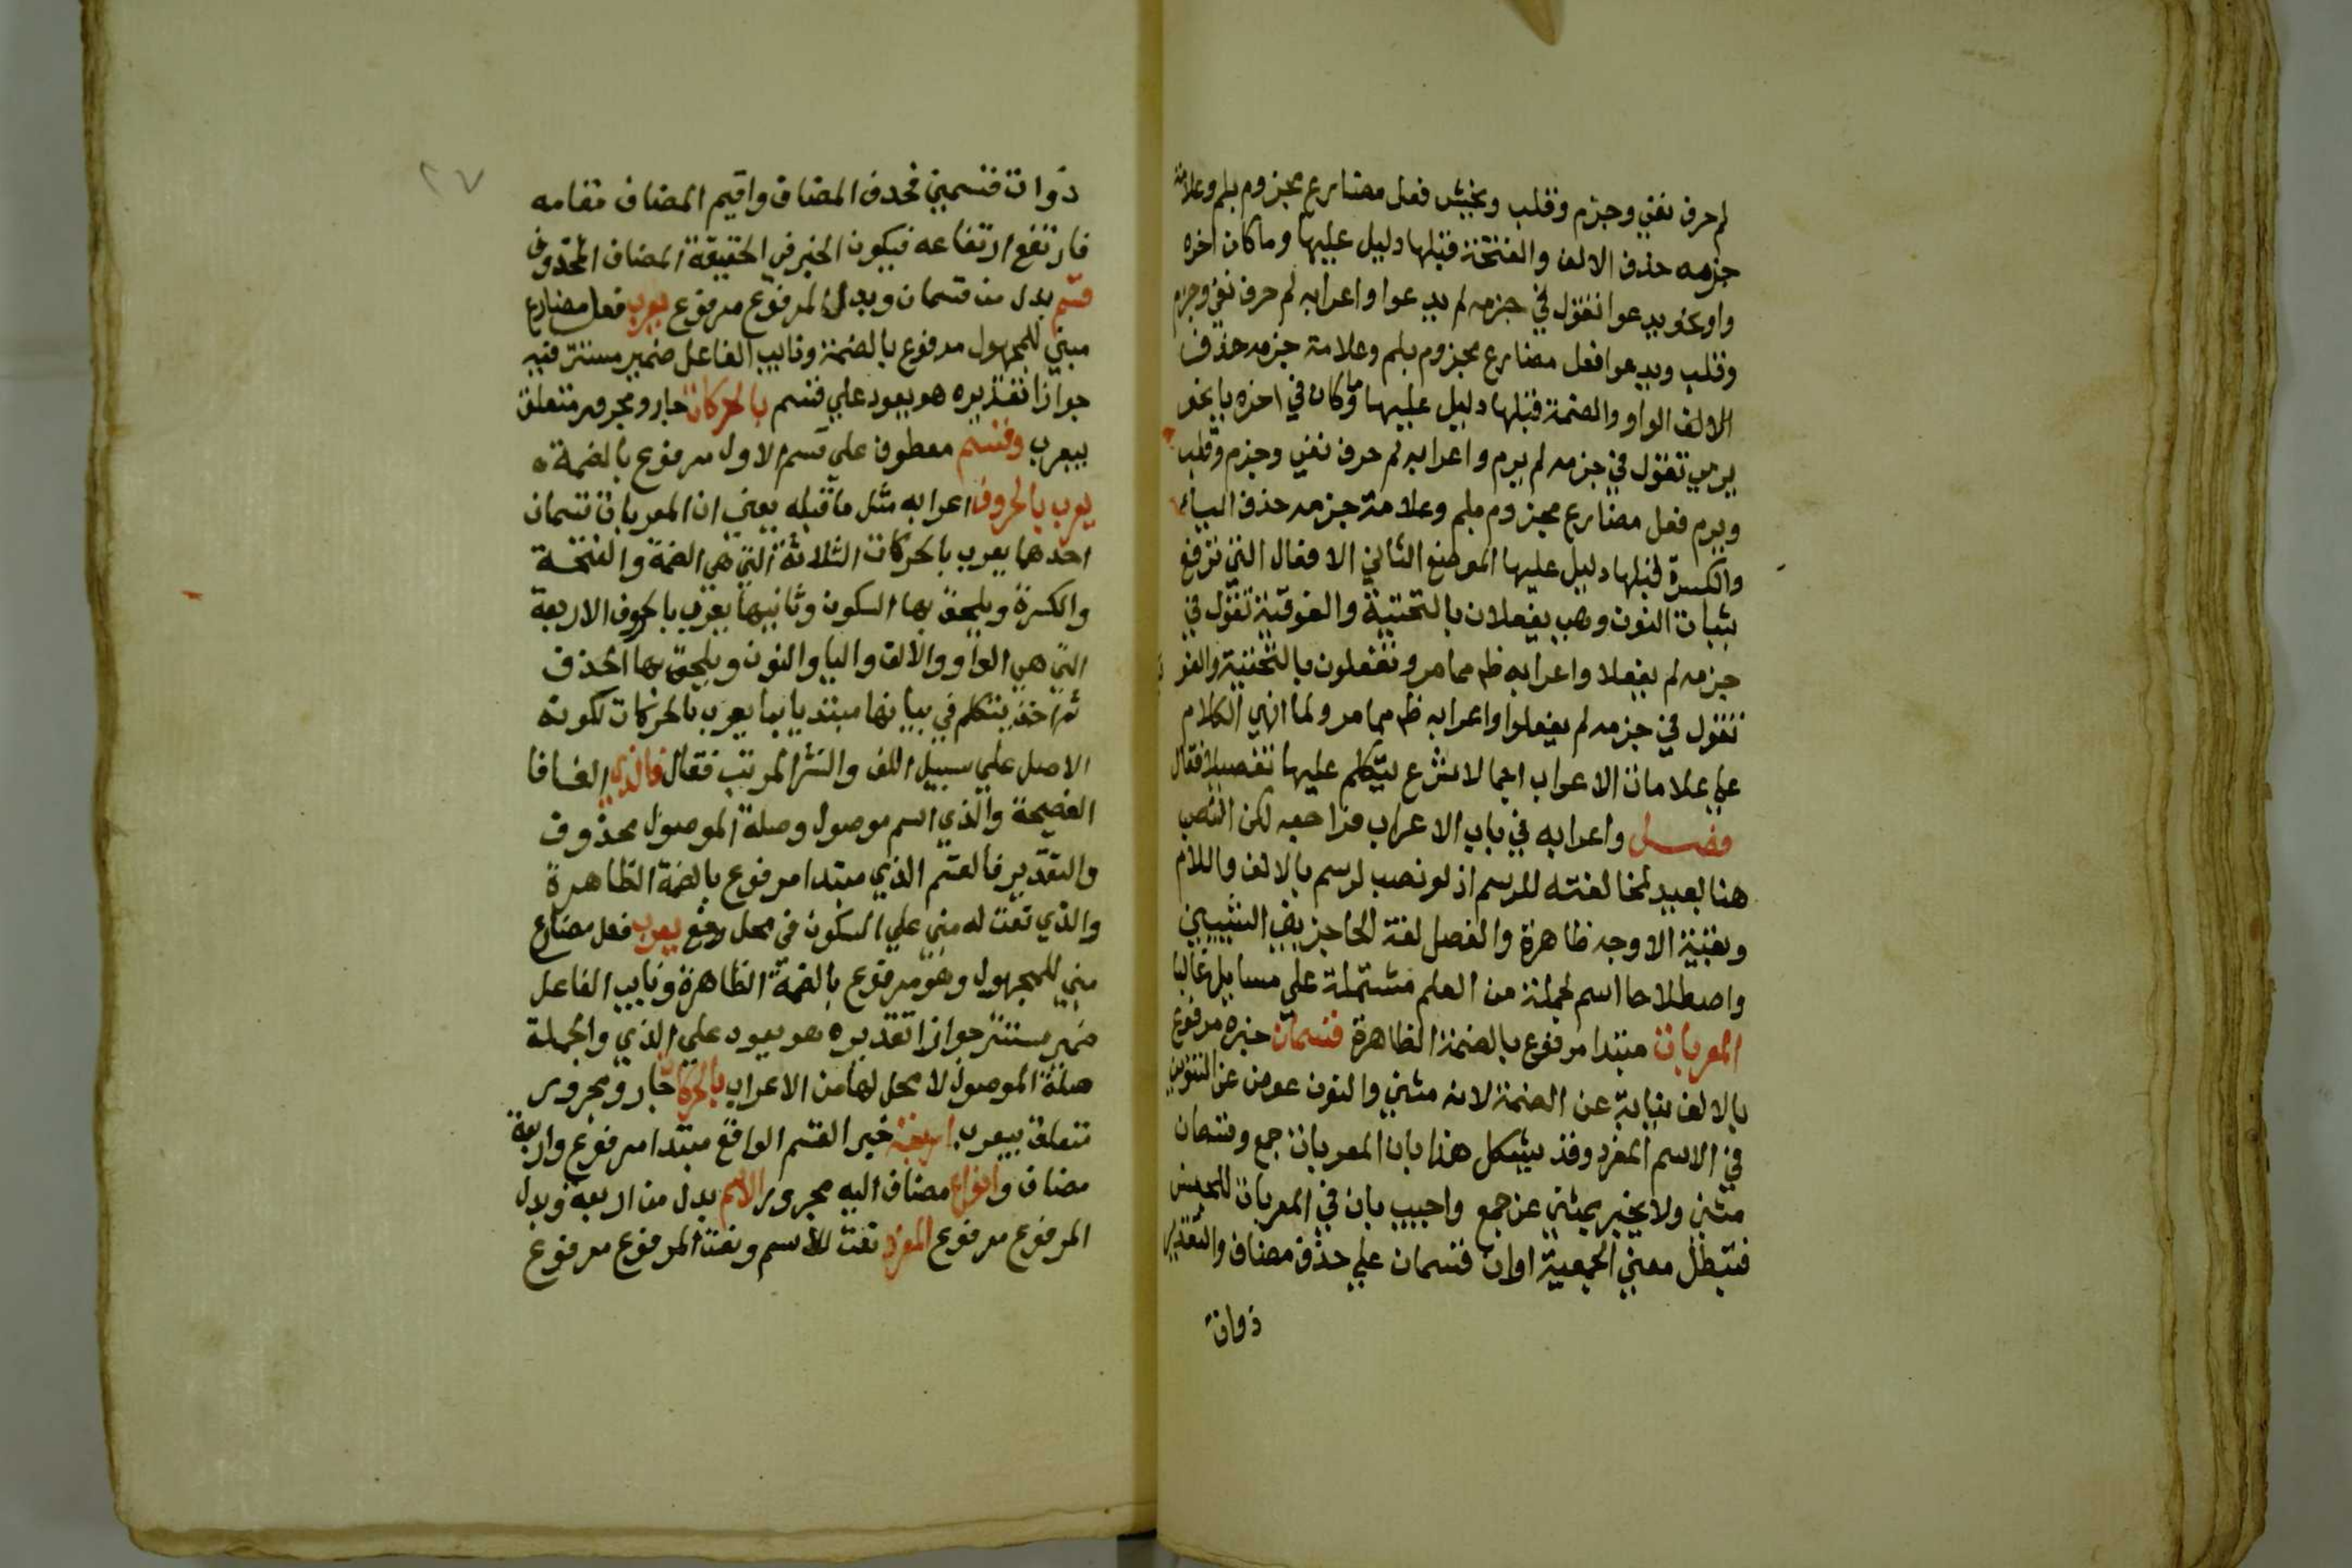 لم حرف نفي وجزم وقلب ويخش فعل مضارع مجزوم بلم وعلامة
جزمه حذف الالف والفتحة قبلها دليل عليها وما كان اخره
واو نحو يدعوا تقول في جزمه لم يدعوا واعرابه لم حرف نفي وجزم
وقلب ويدعوا فعل مضارع مجزوم بلم وعلامة جزمه حذف
الالف الواو والضمة قبلها دليل عليها وما كان في اخره يا نحو
يرمي تقول في جزمه لم يرم واعرابه لم حرف نفي وجزم وقلب
ويرم فعل مضارع مجزوم بلم وعلامة جزمه حذف الياء
والكسرة قبلها دليل عليها الموضع الثاني الافعال التي ترفع
بثبات النون وهي يفعلان بالتحتية والفوقية تقول في
جزمه لم يفعلا واعرابه ظ مما مر وتفعلون بالتحتية والفو
تقول في جزمه لم يفعلوا واعرابه ظ مما مر ولما انهي الكلام
علي علامات الاعراب اجمالا شرع يتكلم عليها تفصيلا فقال
فصل واعرابه في باب الاعراب فراجعه لكن النصب
هنا بعيد لمخالفته للرسم اذ لو نصب لرسم بالالف واللام
وبقية الاوجه ظاهرة والفصل لغة الحاجز بين الشيئين
واصطلاحا اسم لجملة من العلم مشتملة علي مسايل غالبا
المعربات مبتدا مرفوع بالضمة الظاهرة قسمان خبره مرفوع
بالالف نيابة عن الضمة لانه مثني والنون عوض عن التنوين
في الاسم المفرد وقد يشكل هذا بان المعربات جمع وقسمان
مثني ولا يخبر بمثني عن جمع واجيب بان في المعربات للجنس
فتبطل معني الجمعية او ان قسمان علي حذف مضاف والتقدير
ذوات
٢٧
ذوات قسمين فحذف المضاف واقيم المضاف مقامه
فارتفع ارتفاعه فيكون الخبر في الحقيقة المضاف المحذوف
قسم بدل من قسمان وبدل المرفوع مرفوع يعرب فعل مضارع
مبني للمجهول مرفوع بالضمة ونايب الفاعل ضمير مستتر فيه
جوازا تقديره هو يعود علي قسم بالحركات جار ومجرور متعلق
بيعرب وقسم معطوف علي قسم الاول مرفوع بالضمة
يعرب بالحروف اعرابه مثل ما قبله يعني ان المعربات قسمان
احدهما يعرب بالحركات الثلاثة التي هي الضمة والفتحة
والكسرة ويلحق بها السكون وثانيهما يعرب بالحروف الاربعة
التي هي الواو والالف واليا والنون ويلحق بها الحذف
ثم اخذ يتكلم في بيانها مبتديا بما يعرب بالحركات لكونه
الاصل علي سبيل اللف والنشر المرتب فقال فالذي الفا فا
الفصيحة والذي اسم موصول وصلة الموصول محذوف
والتقدير فالقسم الذي مبتدا مرفوع بالضمة الظاهرة
والذي نعت له مبني علي السكون في محل رفع يعرب فعل مضارع
مبني للمجهول وهو مرفوع بالضمة الظاهرة ونايب الفاعل
ضمير مستتر جوازا تقديره هو يعود علي الذي والجملة
صلة الموصول لا محل لها من الاعراب بالحركات جار ومجرور
متعلق بيعرب اربعة خبر القسم الواقع مبتدا مرفوع واربعة
مضاف وانواع مضاف اليه مجرور الاسم بدل من اربعة وبدل
المرفوع مرفوع المفرد نعت للاسم ونعت المرفوع مرفوع